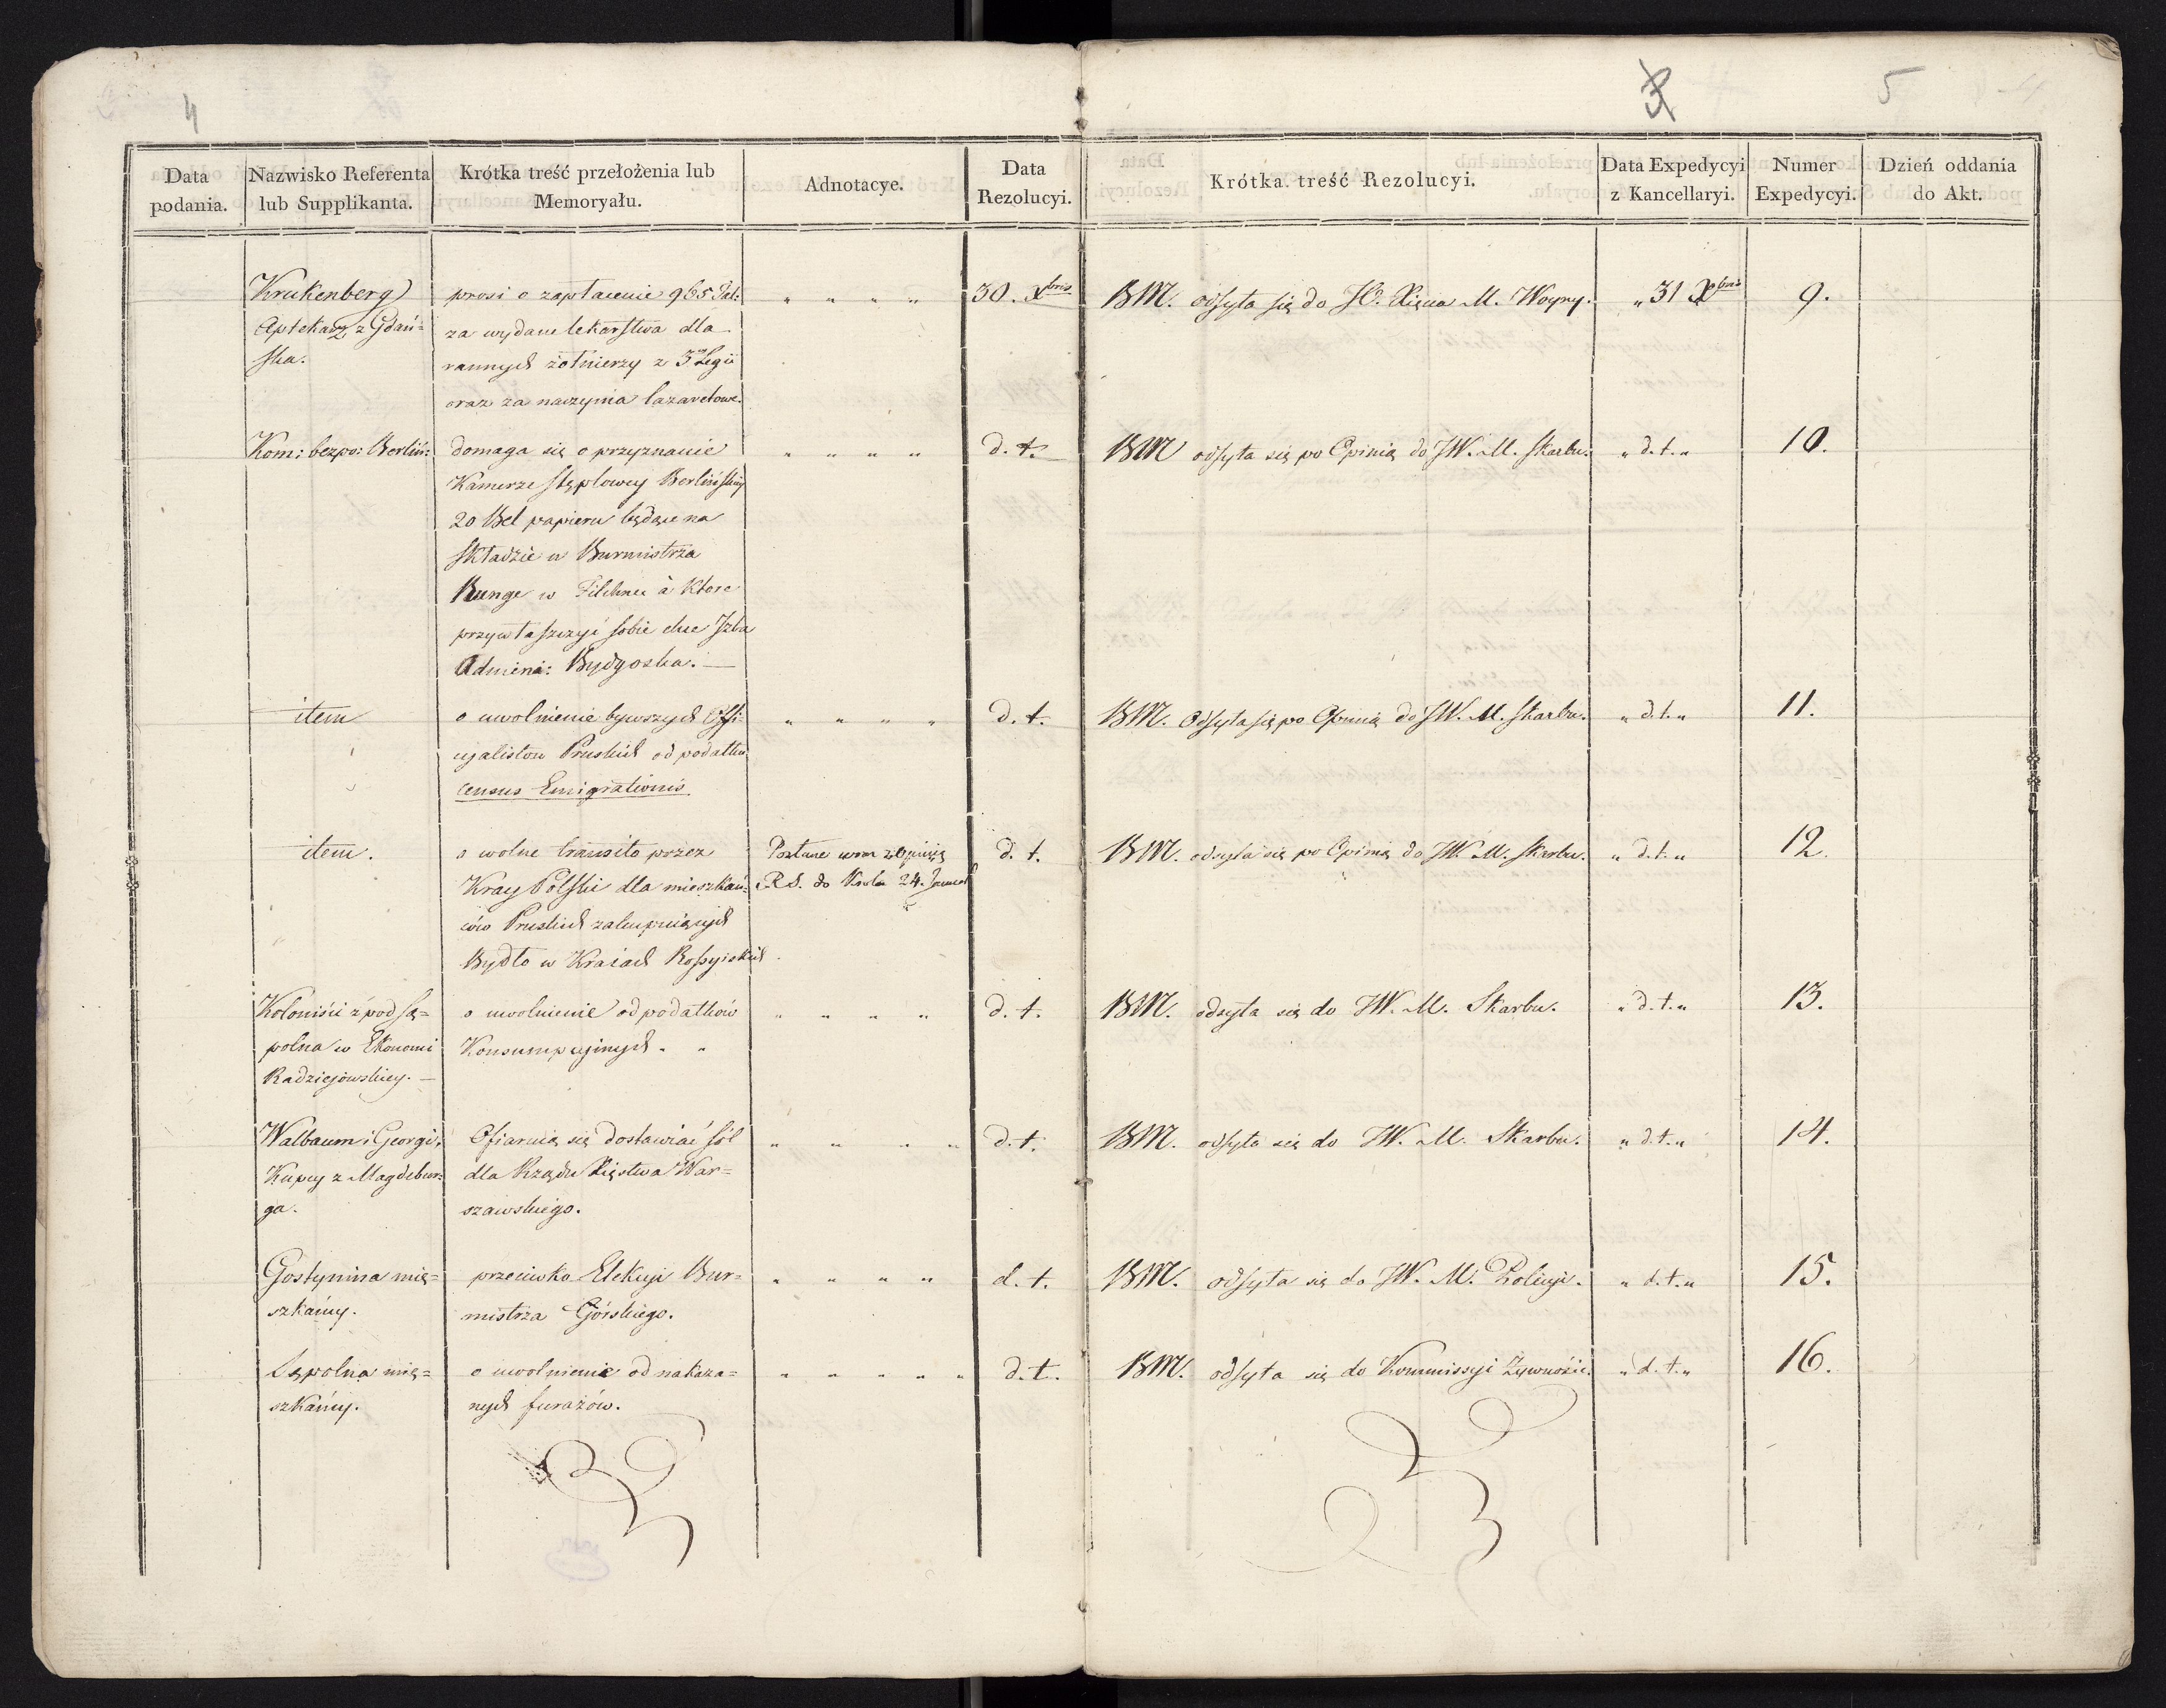 4
3
5
Data podania.
Nazwisko Referenta lub Supplikanta.
Krótka treść przełożenia lub Memoryału.
Adnotacye.
Data Rezolucyi.
Krótka treść Rezolucyi.
Data Expedycyi z Kancellaryi.
Numer Expedycyi.
Dzień oddania do Akt.
Krukenberg
Aptekarz z Gdań=
ska.
prosi o zapłacenie 965 Tal:
za wydane lekarstwa dla
rannych żołnierzy z 3 Legii
oraz za naczynia lazaretowe.
" " " "
30. Xbris
BM. odsyła się do JO. Xięcia M. Woyny.
" 31 Xbris
9.
Kom: bezpo: Berliń:
domaga się o przyznanie
Kamerze stęplowey Berlińskiey
20 Bel papieru będące na
składzie u Burmistrza
Runge w Filehnie à ktore
przywłaszczyć sobie chce Izba
Admini: Bydgoska. —
" " " "
d. t.
BM odsyła się po Opinią do JW. M. Skarbu.
" d. t. "
10.
item
o uwolnienie bywszych Offi:
cyalistow Pruskich od podatku
census Emigrationis.
" " " "
d. t.
BM. Odsyła się po Opinią do JW. M. Skarbu.
" d. t. "
11.
item.
o wolne transito przez
Kray Polski dla mieszkań:
ców Pruskich zakupuiących
Bydło w Kraiach Rossyiskich
z Opinią
R. S. do Krola 24.
d. t.
BM. odsyła się po Opinią do JW. M. Skarbu.
" d. t. "
12.
Koloniści z pod Sę=
polna w Ekonomi
Radziejowskiey. —
o uwolnienie od podatków
Konsumpcyjnych " "
" " " "
d. t.
BM. odsyła się do JW. M. Skarbu.
" d. t. "
13.
Walbaum i Georgi,
Kupcy z Magdebur:
ga.
Ofiaruią się dostawiać sól
dla Rządu Xięstwa War=
szawskiego.
" " " "
d. t.
BM. odsyła się do JW. M. Skarbu.
" d. t. "
14.
Gostynina mię=
szkańcy.
przeciwko Elekcyi Bur=
mistrza Górskiego.
" " " "
d. t.
BM. odsyła się do JW. M. Policyi.
" d. t. "
15.
Sępolna mię=
szkańcy.
o uwolnienie od nakaza=
nych furażów.
" " " " "
d. t.
BM. odsyła się do Kommissyi Żywnośc.
" d. t. "
16.